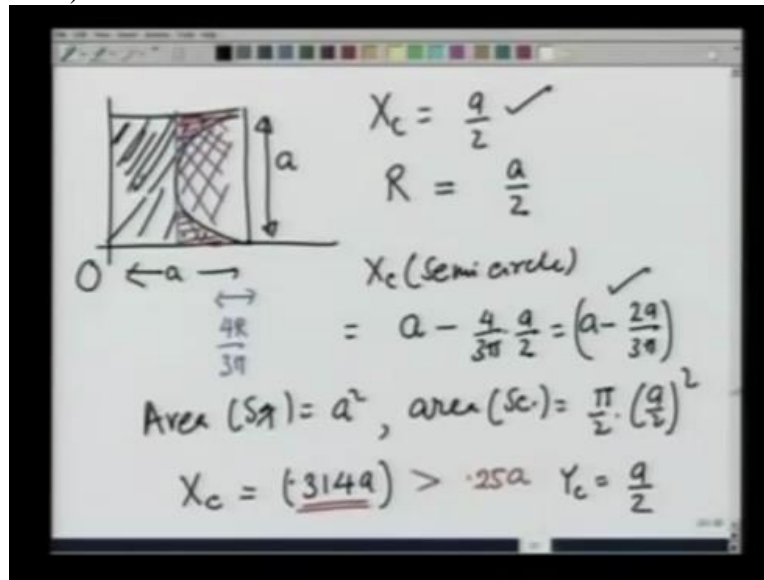 X_c = a/2 ✓
a
R = a/2
O ←a→
X_c (Semi circle)
4R/3π
= a - 4/3π a/2 = (a - 2a/3π) ✓
Area (Sq) = a², area (Sc.) = π/2 · (a/2)²
X_c = (.314a) > .25a Y_c = a/2